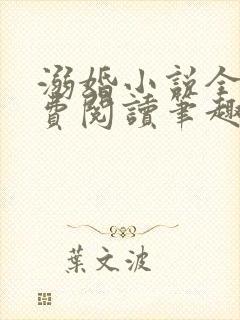 溺婚小説全
費閱讀筆趣
葉文波